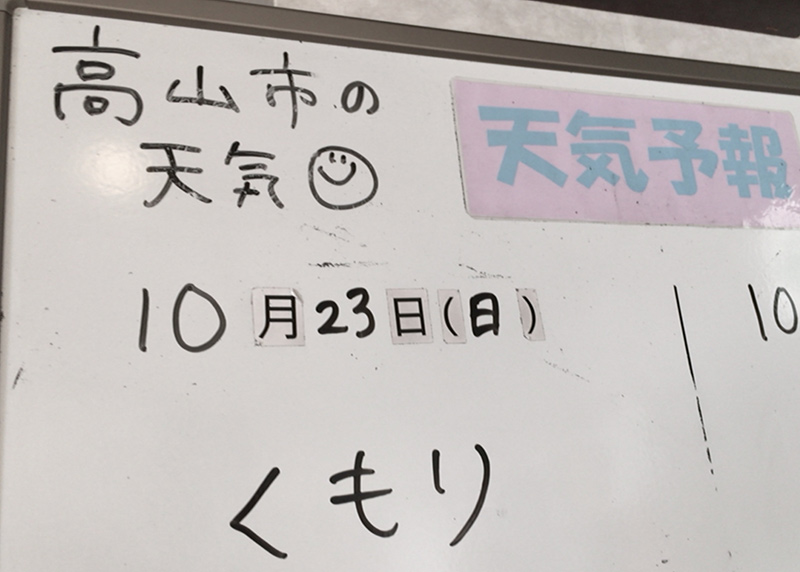 高山市の
天気
天気予報
10月23日(日)
10
くもり